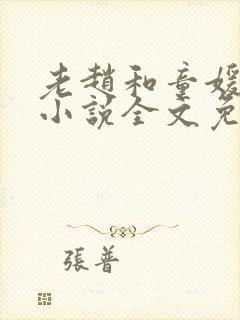 老趙和童媛
小說全文免
張普